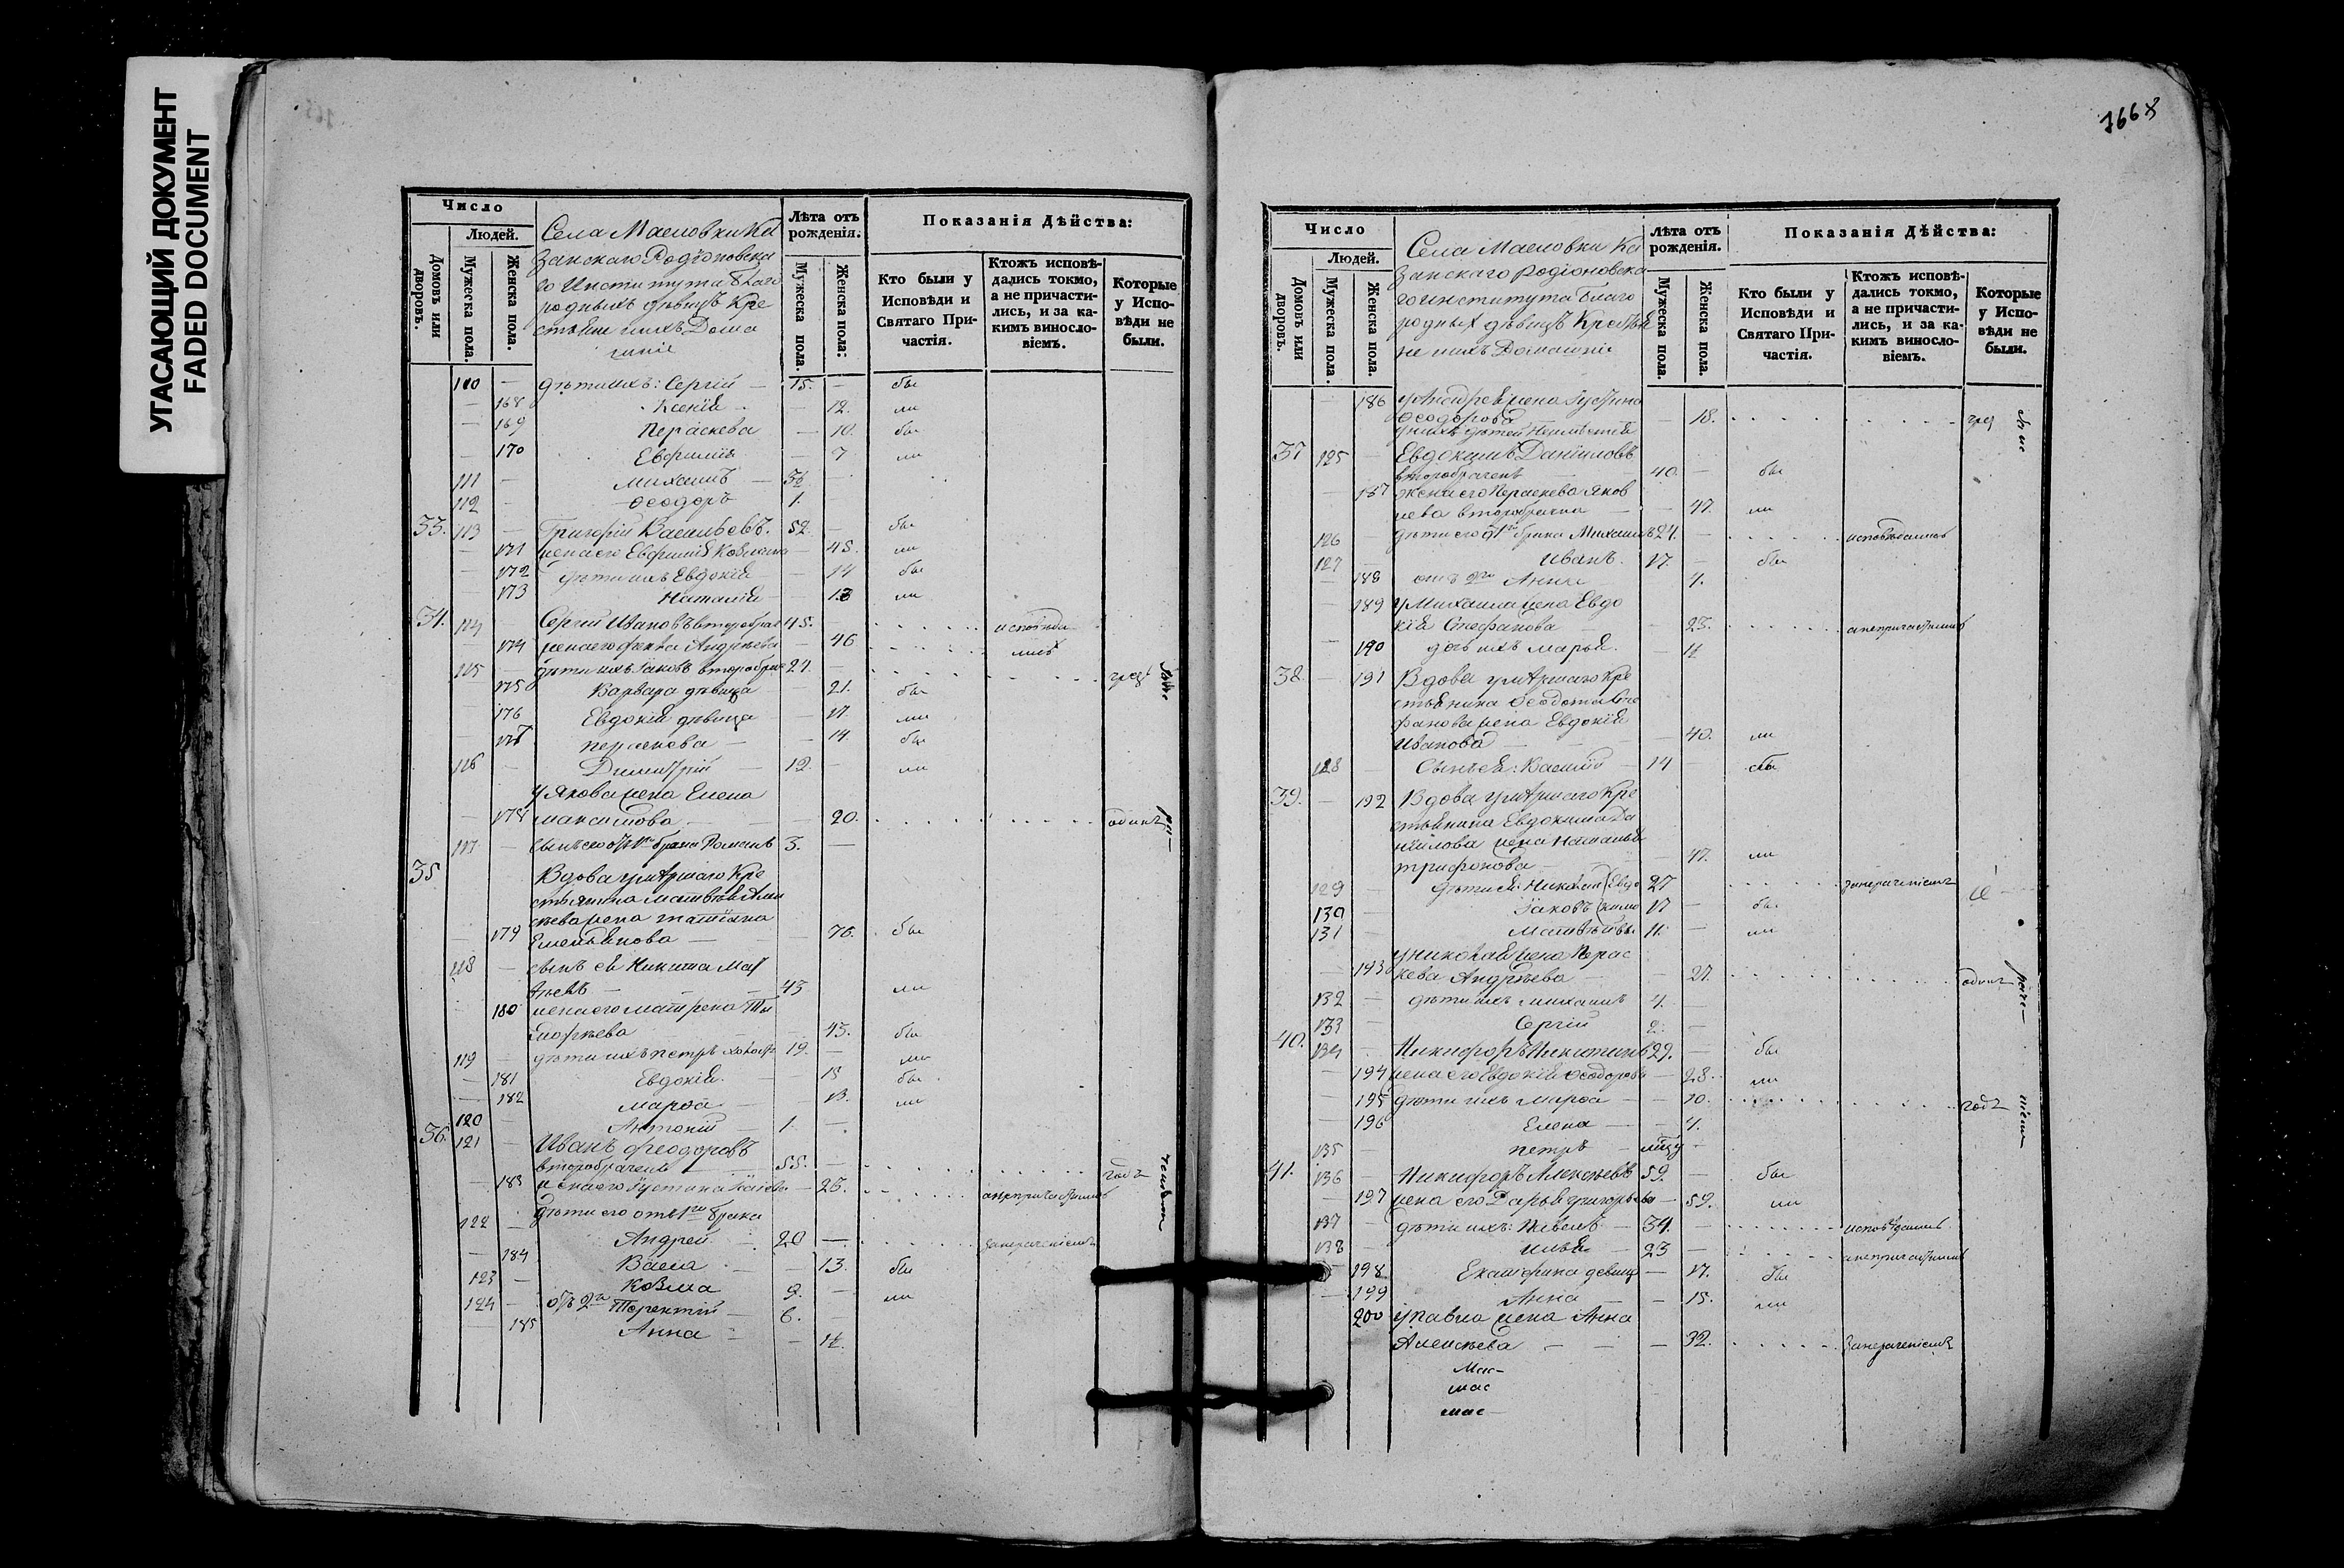 УГАСАЮЩИЙ ДОКУМЕНТ
FADED DOCUMENT
Число
Людей.
Домовъ или дворовъ.
Мужеска пола.
Женска пола.
Села Масловки Ка
занскаго Родіоновска
го Института благо
родныхъ дѣвицъ Кре
стьяне ихъ Дома
шніе
Лѣта отъ рожденія.
Мужеска пола.
Женска пола:
Показанія Дѣйства:
Кто были у Исповѣди и Святаго Причастія.
Ктожъ исповѣдались токмо, а не причастились, и за какимъ винословіемъ.
Которые у Исповѣди не были.
110 — дѣти ихъ: Сергій — 15. — бы
— 168 Ксенія — 12. ли
— 169 Параскева — 10. бы
— 170 Евфимія 7 ли
111 — Михаилъ —
112 — Ѳеодоръ 1.
33. 113 — Григорій Васильевъ. 52 — бы
— 171 жена его Евфимія — 45. ли
— 172 дѣти ихъ Евдокія — 14 бы
— 173 Наталія — 13 ли
34. 114 — Сергій Ивановъ второбрач 45. исповѣда
174 жена его Ѳекла Андреева 46 лись
115 — дѣти ихъ Іаковъ 21. —
175 Варвара дѣвица — 21. бы
176 Евдокія дѣвица — 17. ли
177 Параскева — — 14. бы
116 — Димитрій — 12. — ли
у Якова жена Елена
— 178 Максимова — 20. однихъ
117 — сынъ его отъ 1го брака Романъ 3. —
35 Вдова умершаго Кре
стьянина Матвѣя Алек
сѣева жена Татіана
— 179 Емельянова — — 76. бы
118 — сынъ ея Никита Мат
вѣевъ — 43 ли
180 жена его Матрена Ти
моѳеева — 43. бы
119 — дѣти ихъ Петръ холост 19. — ли
— 181 Евдокія — 15 бы
— 182 Марѳа — 13. ли
120 Антоній — 1. —
36. 121 — Иванъ Феодоровъ
второбрачный — 55. — годъ
— 183 жена его Іустина — 25. а непричастились
дѣти его отъ 1го брака
122 — Андрей — 20 —
— 184 Васса — 13. бы
123 — Козма 9. — ли
124 — отъ 2го Терентій — 6. —
— 185 Анна —
Число
Людей.
Домовъ или дворовъ.
Мужеска пола.
Женска пола.
Села Масловки Ка
занскаго Родіоновска
го института благо
родныхъ дѣвицъ Крестья
не ихъ Домашніе
Лѣта отъ рожденія.
Мужеска пола.
Женска пола.
Показанія Дѣйства:
Кто были у Исповѣди и Святаго Причастія.
Ктожъ исповѣдались токмо, а не причастились, и за какимъ винословіемъ.
Которые у Исповѣди не были.
— 186 у Андрея жена Іустина
Ѳеодорова — 18.
37 125 — Евдокимъ Даниловъ
второбраченъ 40. — бы
— 187 жена его Параскева Яков
лева второбрачна — 47. ли
126 — дѣти его отъ 1го брака Михаилъ 24. — исповѣдались
127 — Иванъ. 17. — бы
— 188 отъ 2го Анна 4.
— 189 у Михаила жена Евдо
кія Стефанова — 23. а непричастились
— 190 дочь ихъ Марья.
38. — 191 Вдова умершаго Кре
стьянина Ѳеодота Сте
фанова жена Евдокія
Иванова — 40. ли
128 Сынъ ея: Василій — 14 — бы
39. — 192 Вдова умершаго Кре
стьянина Евдокима Да
нилова жена Наталья
Трифонова — 47. ли
129 — дѣти ея: Николай 27
130 Іаковъ 17 — бы
131 Матвѣй 11. — ли
у Николая жена Парас
— 193 кева Андреева — 27. однихъ
132 — дѣти ихъ Михаилъ 4. —
133 — Сергій 2. —
40. 134 Никифоръ Никитинъ 29. — бы
— 194 жена его Евдокія Ѳеодорова — 28. ли
— 195 дѣти ихъ Марѳа — 10. годъ
— 196 Елена — 4.
135 — Петръ —
41. 136 — Никифоръ Алексѣевъ 59. — бы
— 197 жена его Дарья Григорьева — 59. ли
137 — дѣти ихъ: Павелъ — 34. — исповѣдались
138 — Илья — 23 — а непричастились
— 198 Екатерина девица — 17. бы
— 199 Анна — 15. ли
200 у Павла жена Анна
Алексѣева — 32.